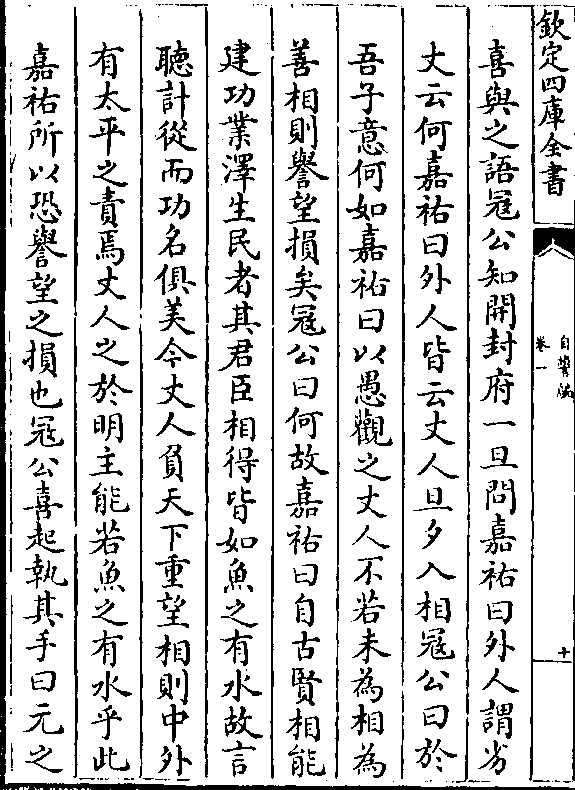 欽定四庫全書
自警編
卷一
十
喜與之語寇公知開封府一旦問嘉祐曰外人謂劣
丈云何嘉祐曰外人皆云丈人旦夕入相寇公曰於
吾子意何如嘉祐曰以愚觀之丈人不若未為相為
善相則譽望損矣寇公曰何故嘉祐曰自古賢相能
建功業澤生民者其君臣相得皆如魚之有水故言
聽計從而功名俱美今丈人負天下重望相則中外
有太平之責焉丈人之於明主能若魚之有水乎此
嘉祐所以恐譽望之損也寇公喜起執其手曰元之